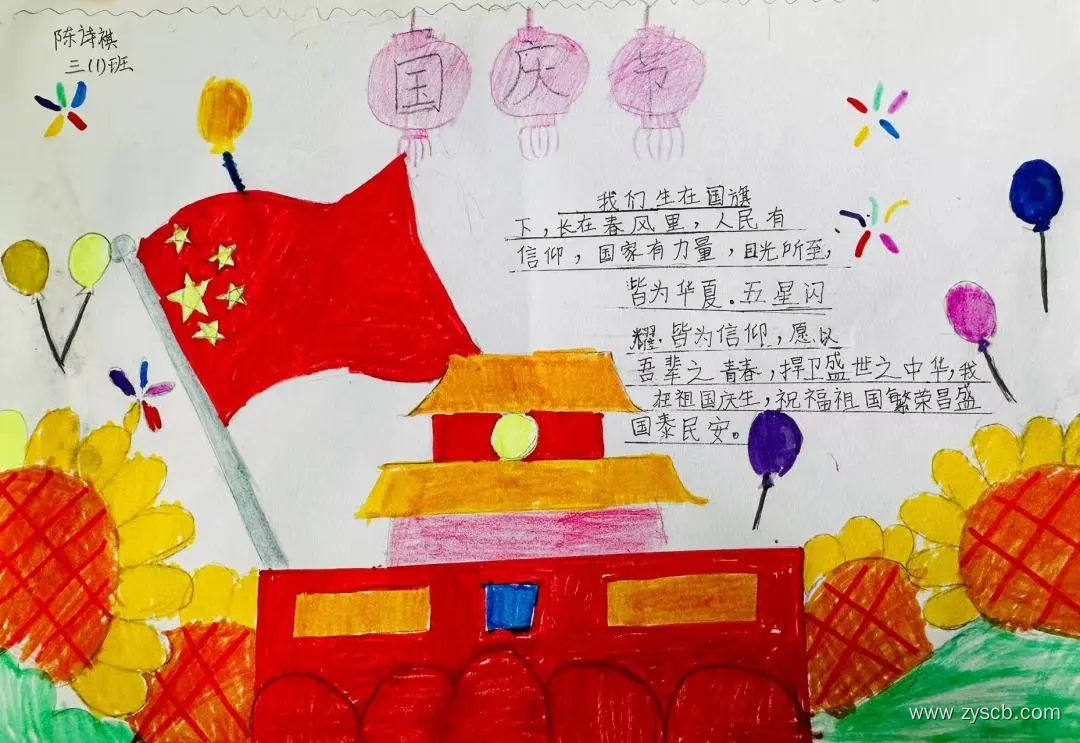 陈诗祺
三(1)班
国庆节
我们生在国旗
下，长在春风里，人民有
信仰，国家有力量，目光所至，
皆为华夏.五星闪
耀.皆为信仰，愿以
吾辈之青春，捍卫盛世之中华，我
在祖国庆生，祝福祖国繁荣昌盛
国泰民安。
www.zyscb.com